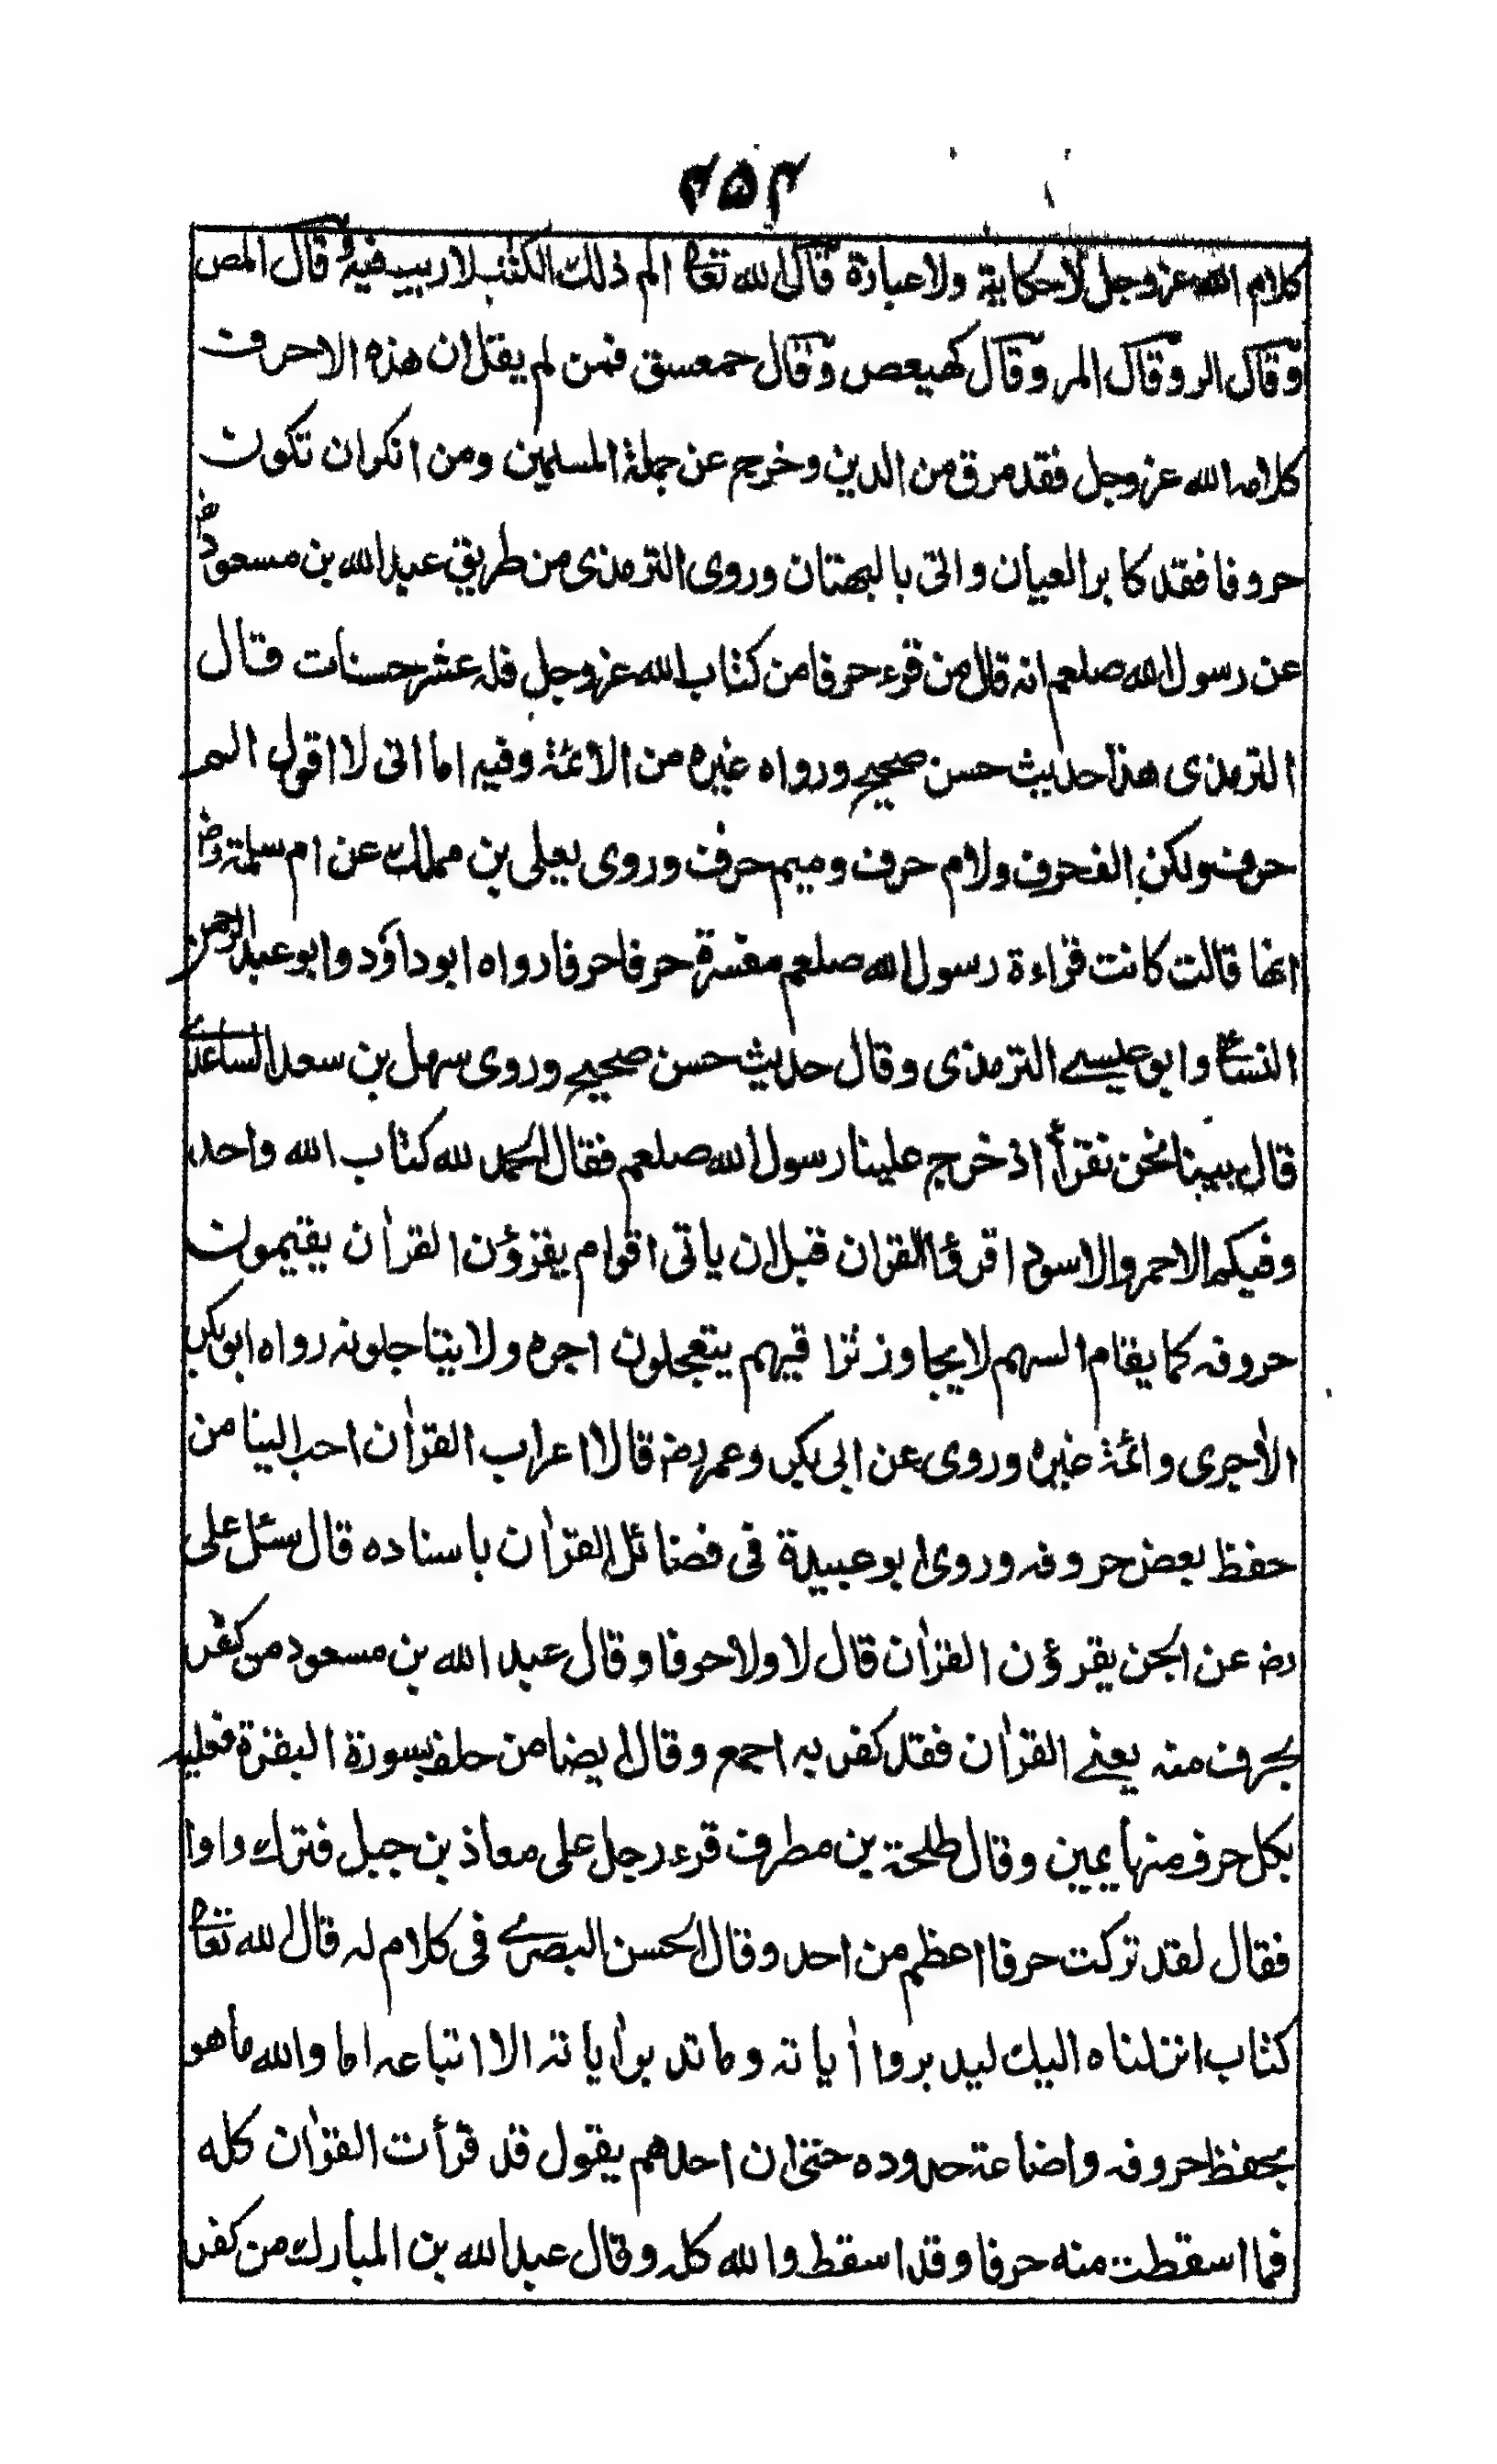 ۲۵۴
كلام الله عز وجل لا حكاية ولا عبارة قال الله تعالى الم ذلك الكتب لا ريب فيه وقال المص
وقال الر وقال المر وقال كهيعص وقال حمعسق فمن لم يقل ان هذه الاحرف
كلام الله عز وجل فقد مرق من الدين وخرج عن جملة المسلمين ومن انكر ان تكون
حروفا فقد كابر العيان واتى بالبهتان وروى الترمذى من طريق عبد الله بن مسعود رض
عن رسول الله صلعم انه قال من قرء حرفا من كتاب الله عز وجل فله عشر حسنات قال
الترمذى هذا حديث حسن صحيح ورواه غيره من الائمة وفيه اما انى لا اقول الم
حرف ولكن الف حرف ولام حرف وميم حرف وروى يعلى بن مملك عن ام سلمة رض
انها قالت كانت قراءة رسول الله صلعم مفسرة حرفا حرفا رواه ابو داؤد وابو عبد الرحمن
النسائى وابو عيسے الترمذى وقال حديث حسن صحيح وروى سهل بن سعد الساعدے
قال بينا نحن نقرأ اذ خرج علينا رسول الله صلعم فقال الحمد لله كتاب الله واحد
وفيكم الاحمر والاسود اقرؤا القران قبل ان ياتى اقوام يقرؤن القرأن يقيمون
حروفه كما يقام السهم لا يجاوز تراقيهم يتعجلون اجره ولا يتاجلونه رواه ابو بكر
الأجرى وائمة غيره وروى عن ابى بكر وعمر رض قالا اعراب القرأن احب الينا من
حفظ بعض حروفه وروى ابو عبيدة فى فضائل القرأن باسناده قال سئل على
رض عن الجن يقرؤن القرأن قال لا ولا حرفا وقال عبد الله بن مسعود من كفر
بحرف منه يعنے القرأن فقد كفر به اجمع وقال ايضا من حلف بسورة البقرة فعليه
بكل حرف منها يمين وقال طلحة بن مطرف قرء رجل على معاذ بن جبل فترك واوا
فقال لقد تركت حرفا اعظم من احد وقال الحسن البصرے فى كلام له قال الله تعالى
كتاب انزلناه اليك ليدبروا أياته وما تدبر أياته الا اتباعه اما والله ما هو
بحفظ حروفه واضاعة حدوده حتى ان احدهم يقول قد قرأت القرأن كله
فما اسقطت منه حرفا وقد اسقط والله كله وقال عبد الله بن المبارك من كفر